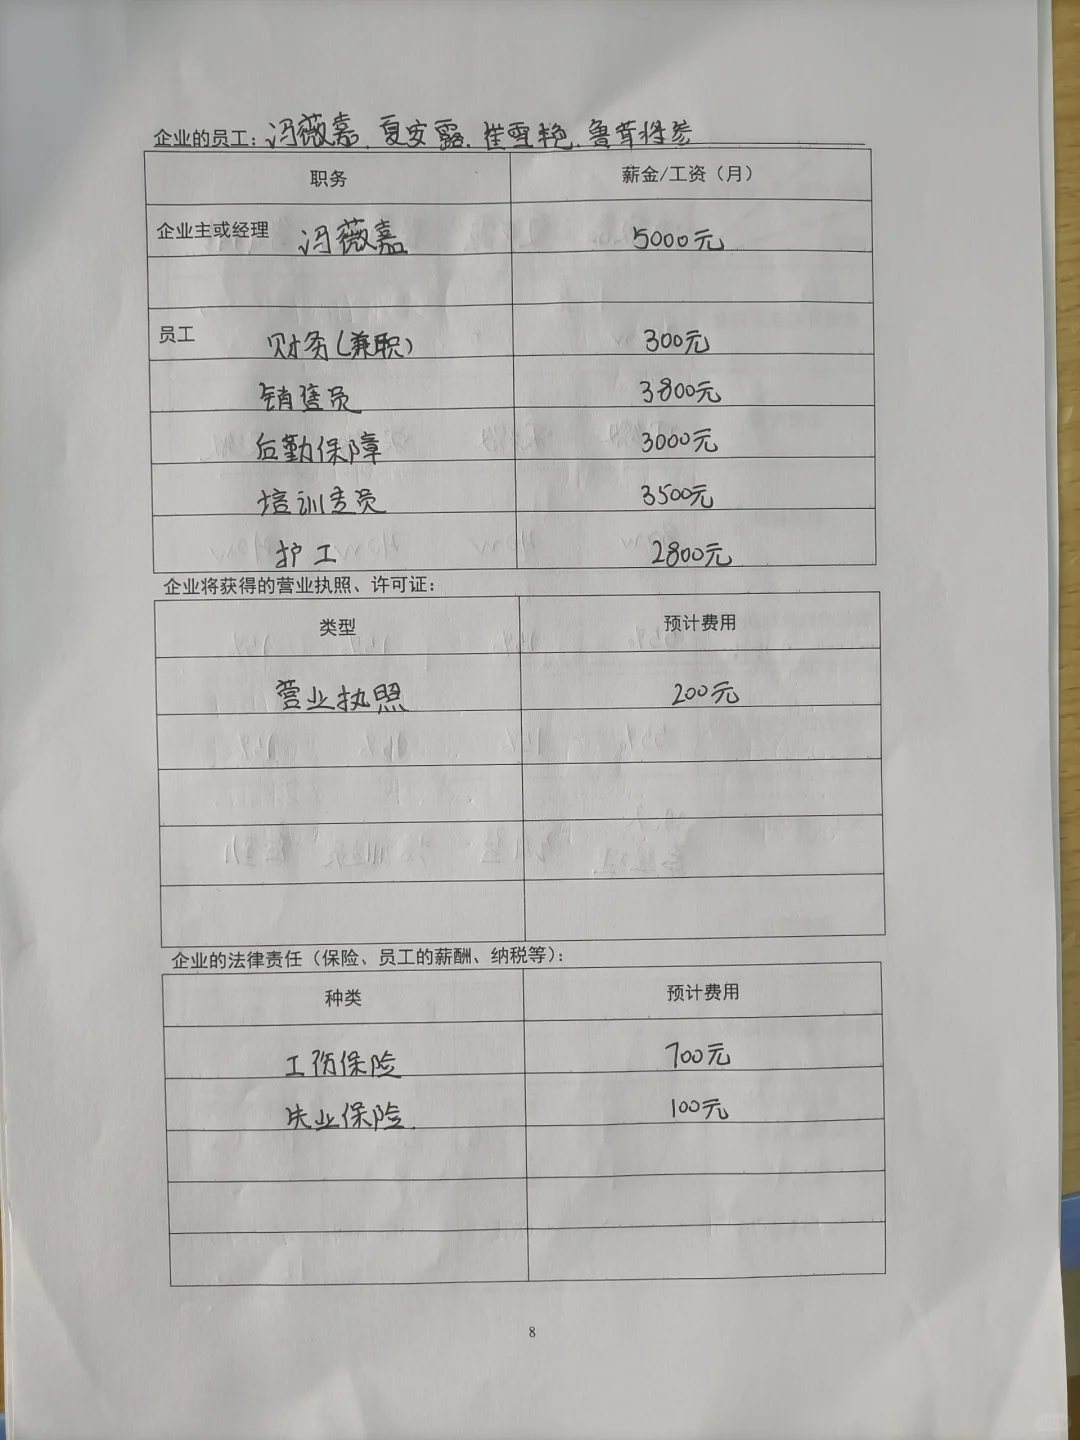 企业的员工：冯薇嘉、夏安露、崔雪艳、鲁茸拉参
职务 薪金/工资（月）
企业主或经理 冯薇嘉 5000元
员工 财务（兼职） 300元
销售员 3800元
后勤保障 3000元
培训专员 3500元
护工 2800元
企业将获得的营业执照、许可证：
类型 预计费用
营业执照 200元
企业的法律责任（保险、员工的薪酬、纳税等）：
种类 预计费用
工伤保险 700元
失业保险 100元
8